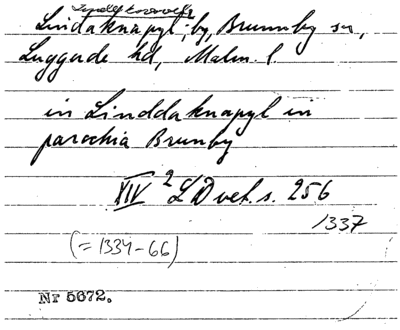 Lindaknapyl, by, Brunnby sn,
Luggude hd, Malm. l.
in Linddaknapyl in
parochia Brunby
XIV 2 LD vet. s. 256
1337
(= 1334-66)
Nr 5672.